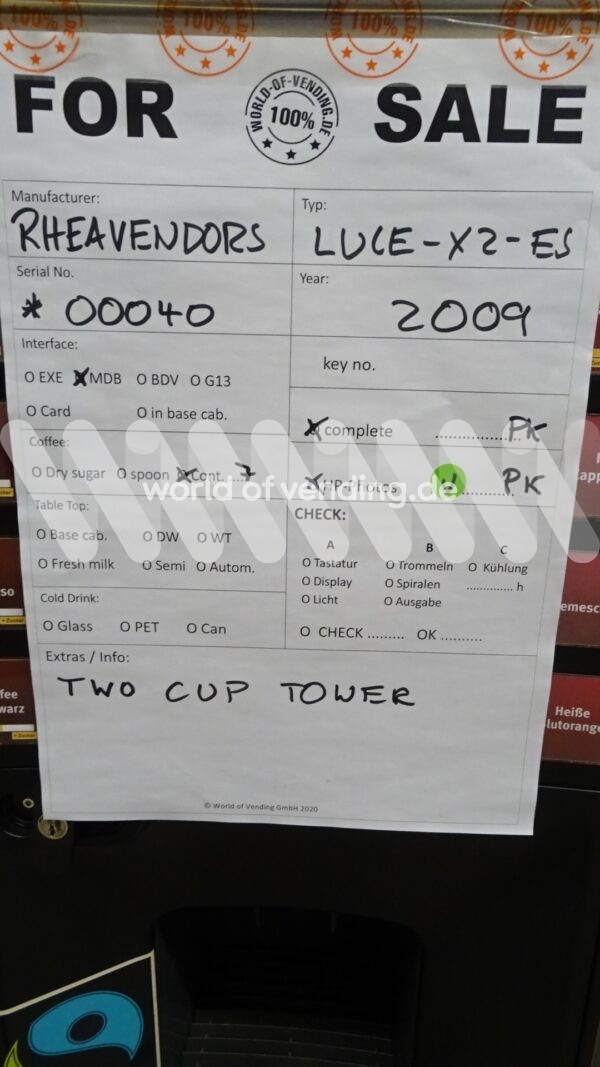 100% 100% 100% 100%
WORLD-OF-VENDING.DE
FOR SALE
WORLD-OF-VENDING.DE
100%
Manufacturer:
RHEAVENDORS
Typ:
LUCE-X2-ES
Serial No.
* 00040
Year:
2009
Interface:
O EXE MDB O BDV O G13
O Card O in base cab.
key no.
complete ................. PK
Coffee:
O Dry sugar O spoon Cont. ...7
PK
world of vending.de
Table Top:
O Base cab. O DW O WT
O Fresh milk O Semi O Autom.
CHECK:
A B C
O Tastatur O Trommeln O Kühlung
O Display O Spiralen .............. h
O Licht O Ausgabe
O CHECK ......... OK ..........
Cold Drink:
O Glass O PET O Can
Extras / Info:
TWO CUP TOWER
© World of Vending GmbH 2020
so
fee
warz
+Zucker
emesc
Heiße
lutorange